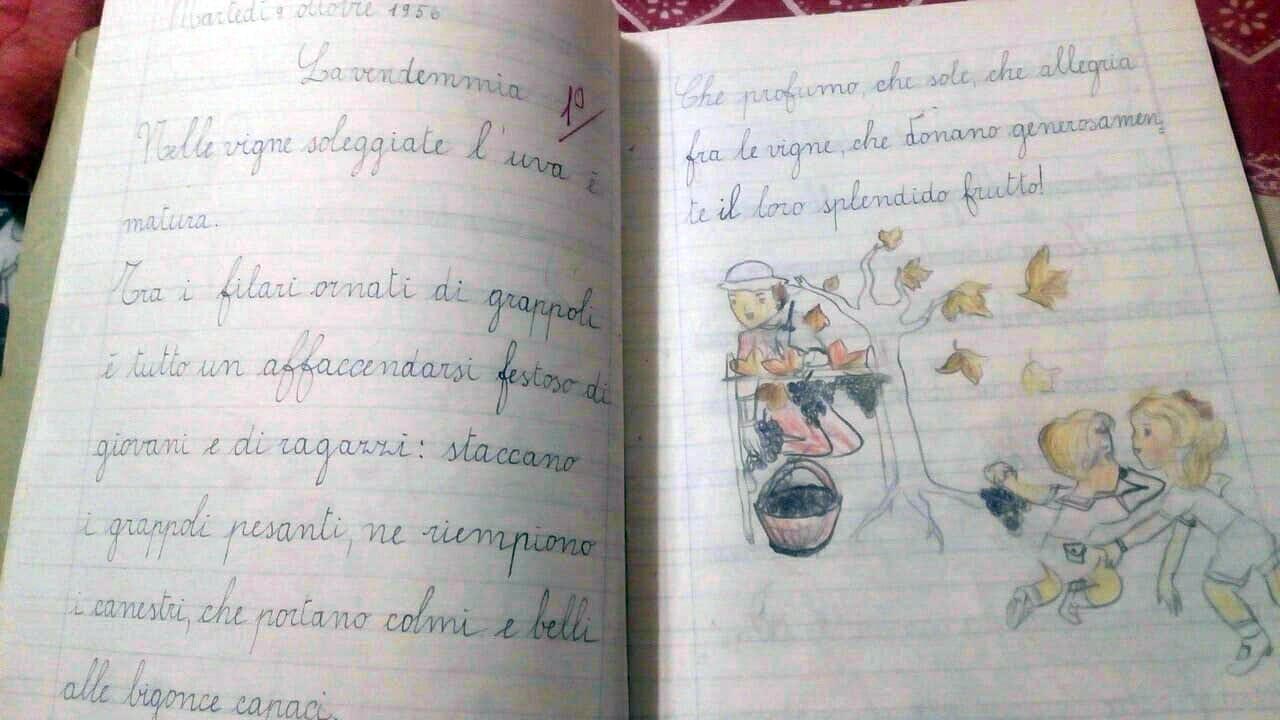 Martedì 9 ottobre 1956
La vendemmia
10
Nelle vigne soleggiate l'uva è
matura.
Tra i filari ornati di grappoli
è tutto un affaccendarsi festoso di
giovani e di ragazzi: staccano
i grappoli pesanti, ne riempiono
i canestri, che portano colmi e belli
alle bigonce capaci.
Che profumo, che sole, che allegria
fra le vigne, che donano generosamen=
te il loro splendido frutto!